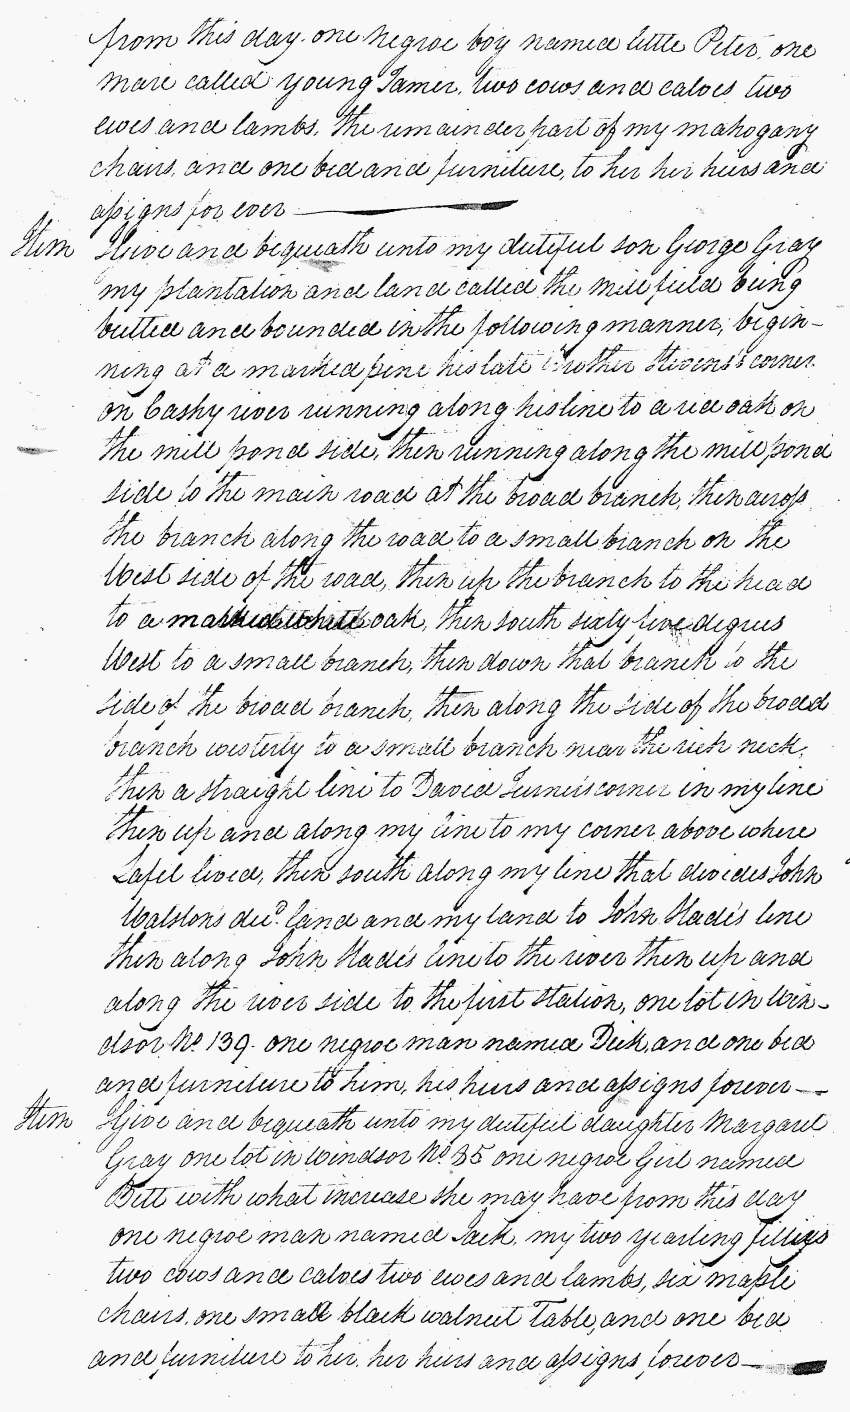 from this day. one negroe boy named little Peter, one
mare called young Tamer, two cows and calves two
ewes and lambs, the remainder part of my mahogany
chairs, and one bed and furniture, to her her heirs and
assigns for ever
Item I Give and bequeath unto my dutiful son George Gray
my plantation and land called the mill field being
butted and bounded in the following manner, begin-
ning at a marked pine his late brother Stevens's corner
on Cashy river running along his line to a red oak on
the mill pond side, then running along the mill pond
side to the main road at the broad branch, then across
the branch along the road to a small branch on the
West side of the road, then up the branch to the head
to a marked white oak, then south sixty five degrees
West to a small branch, then down that branch to the
side of the broad branch, then along the side of the broad
branch westerly to a small branch near the rich neck,
then a straight line to David Turner's corner in my line
then up and along my line to my corner above where
lived, then south along my line that divides John
Walston's decd. land and my land to John Slade's line
then along John Slade's line to the river then up and
along the river side to the first station, one lot in Win-
dsor, No. 139. one negroe man named Dick, and one bed
and furniture to him, his heirs and assigns forever
Item I Give and bequeath unto my dutiful daughter Margaret
Gray one lot in Windsor No. 35 one negroe Girl named
Bett with what increase she may have from this day
one negroe man named Jack, my two yearling fillies
two cows and calves two ewes and lambs, six maple
chairs, one small black walnut Table, and one bed
and furniture to her, her heirs and assigns forever